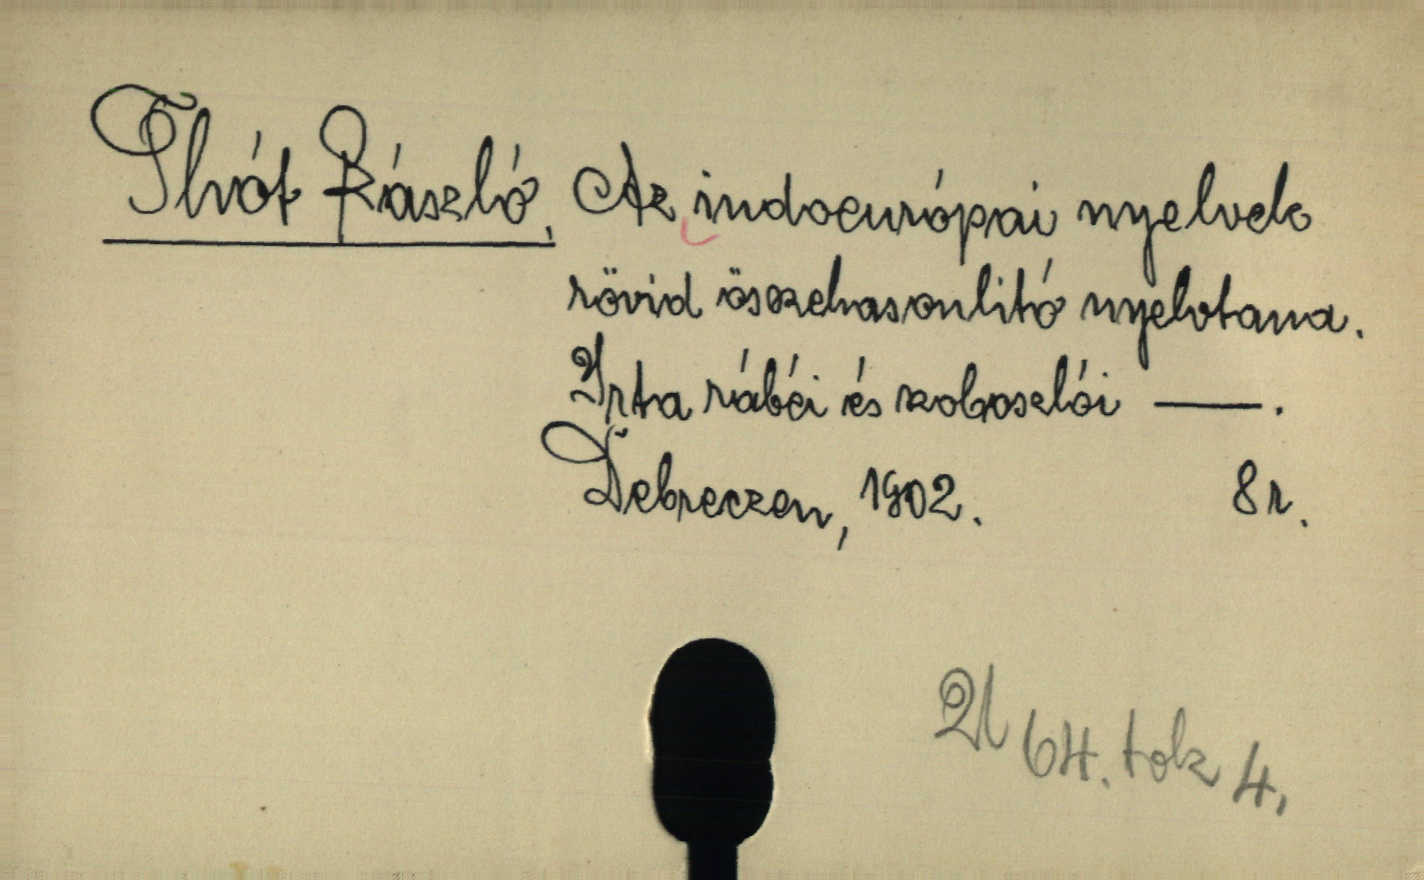 Thót Rászló, Az indoeurópai nyelvek
rövid összehasonlitó nyelvtana.
Irta rábéi és szoboszlói —.
Debreczen, 1902. 8r.
64. tok 4.